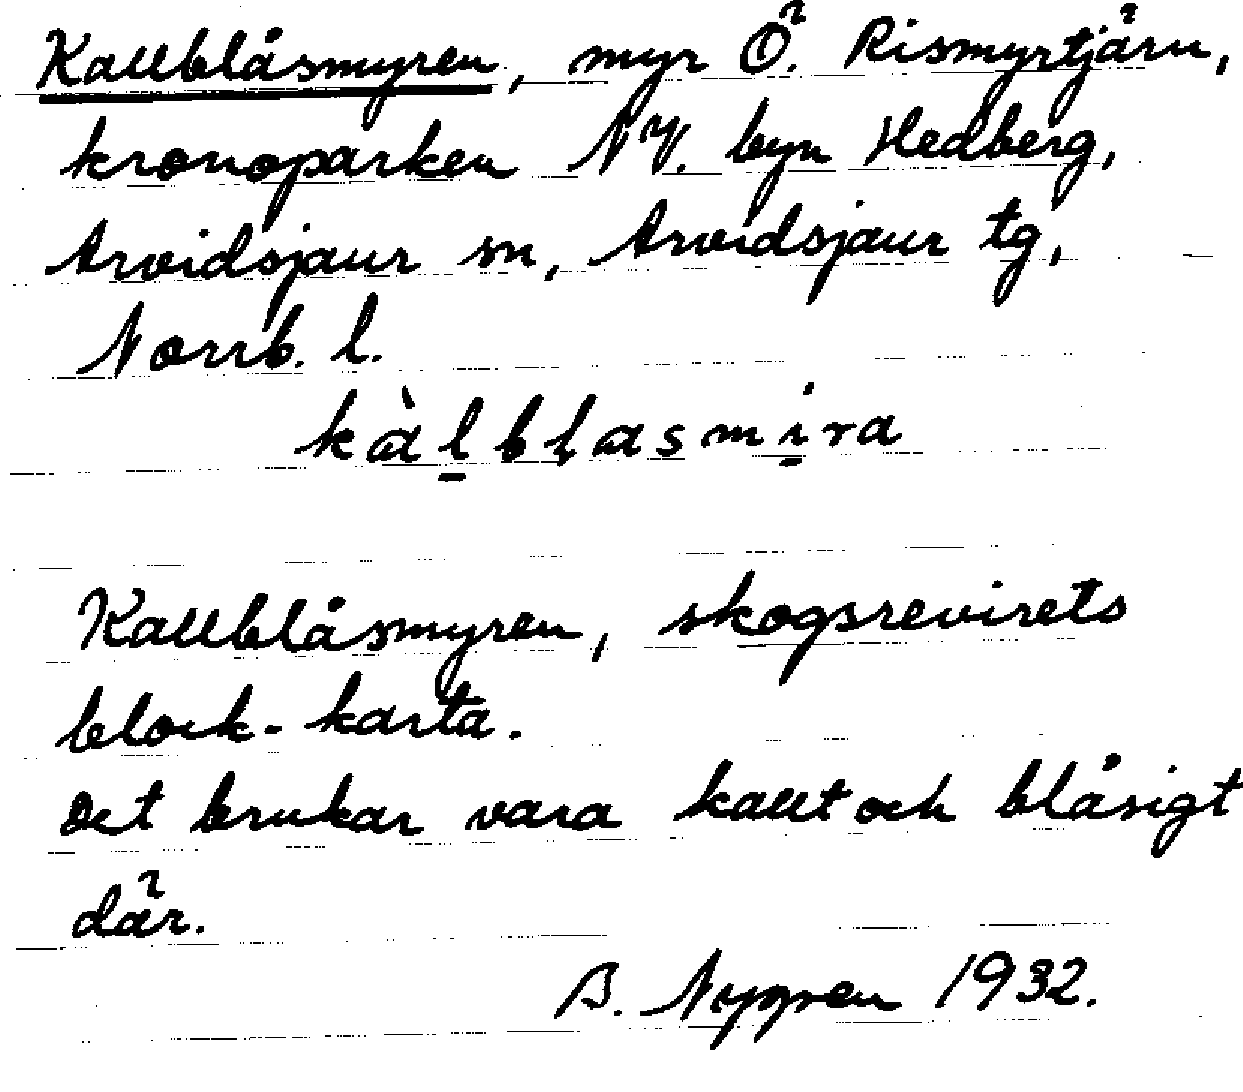 Kallblåsmyren, myr Ö. Rismyrtjärn,
kronoparken NV. byn Hedberg,
Arvidsjaur sn, Arvidsjaur tg,
Norrb. l.
kàlblasmira
Kallblåsmyren, skogsrevirets
block-karta.
Det brukar vara kallt och blåsigt
där.
B. Nygren 1932.